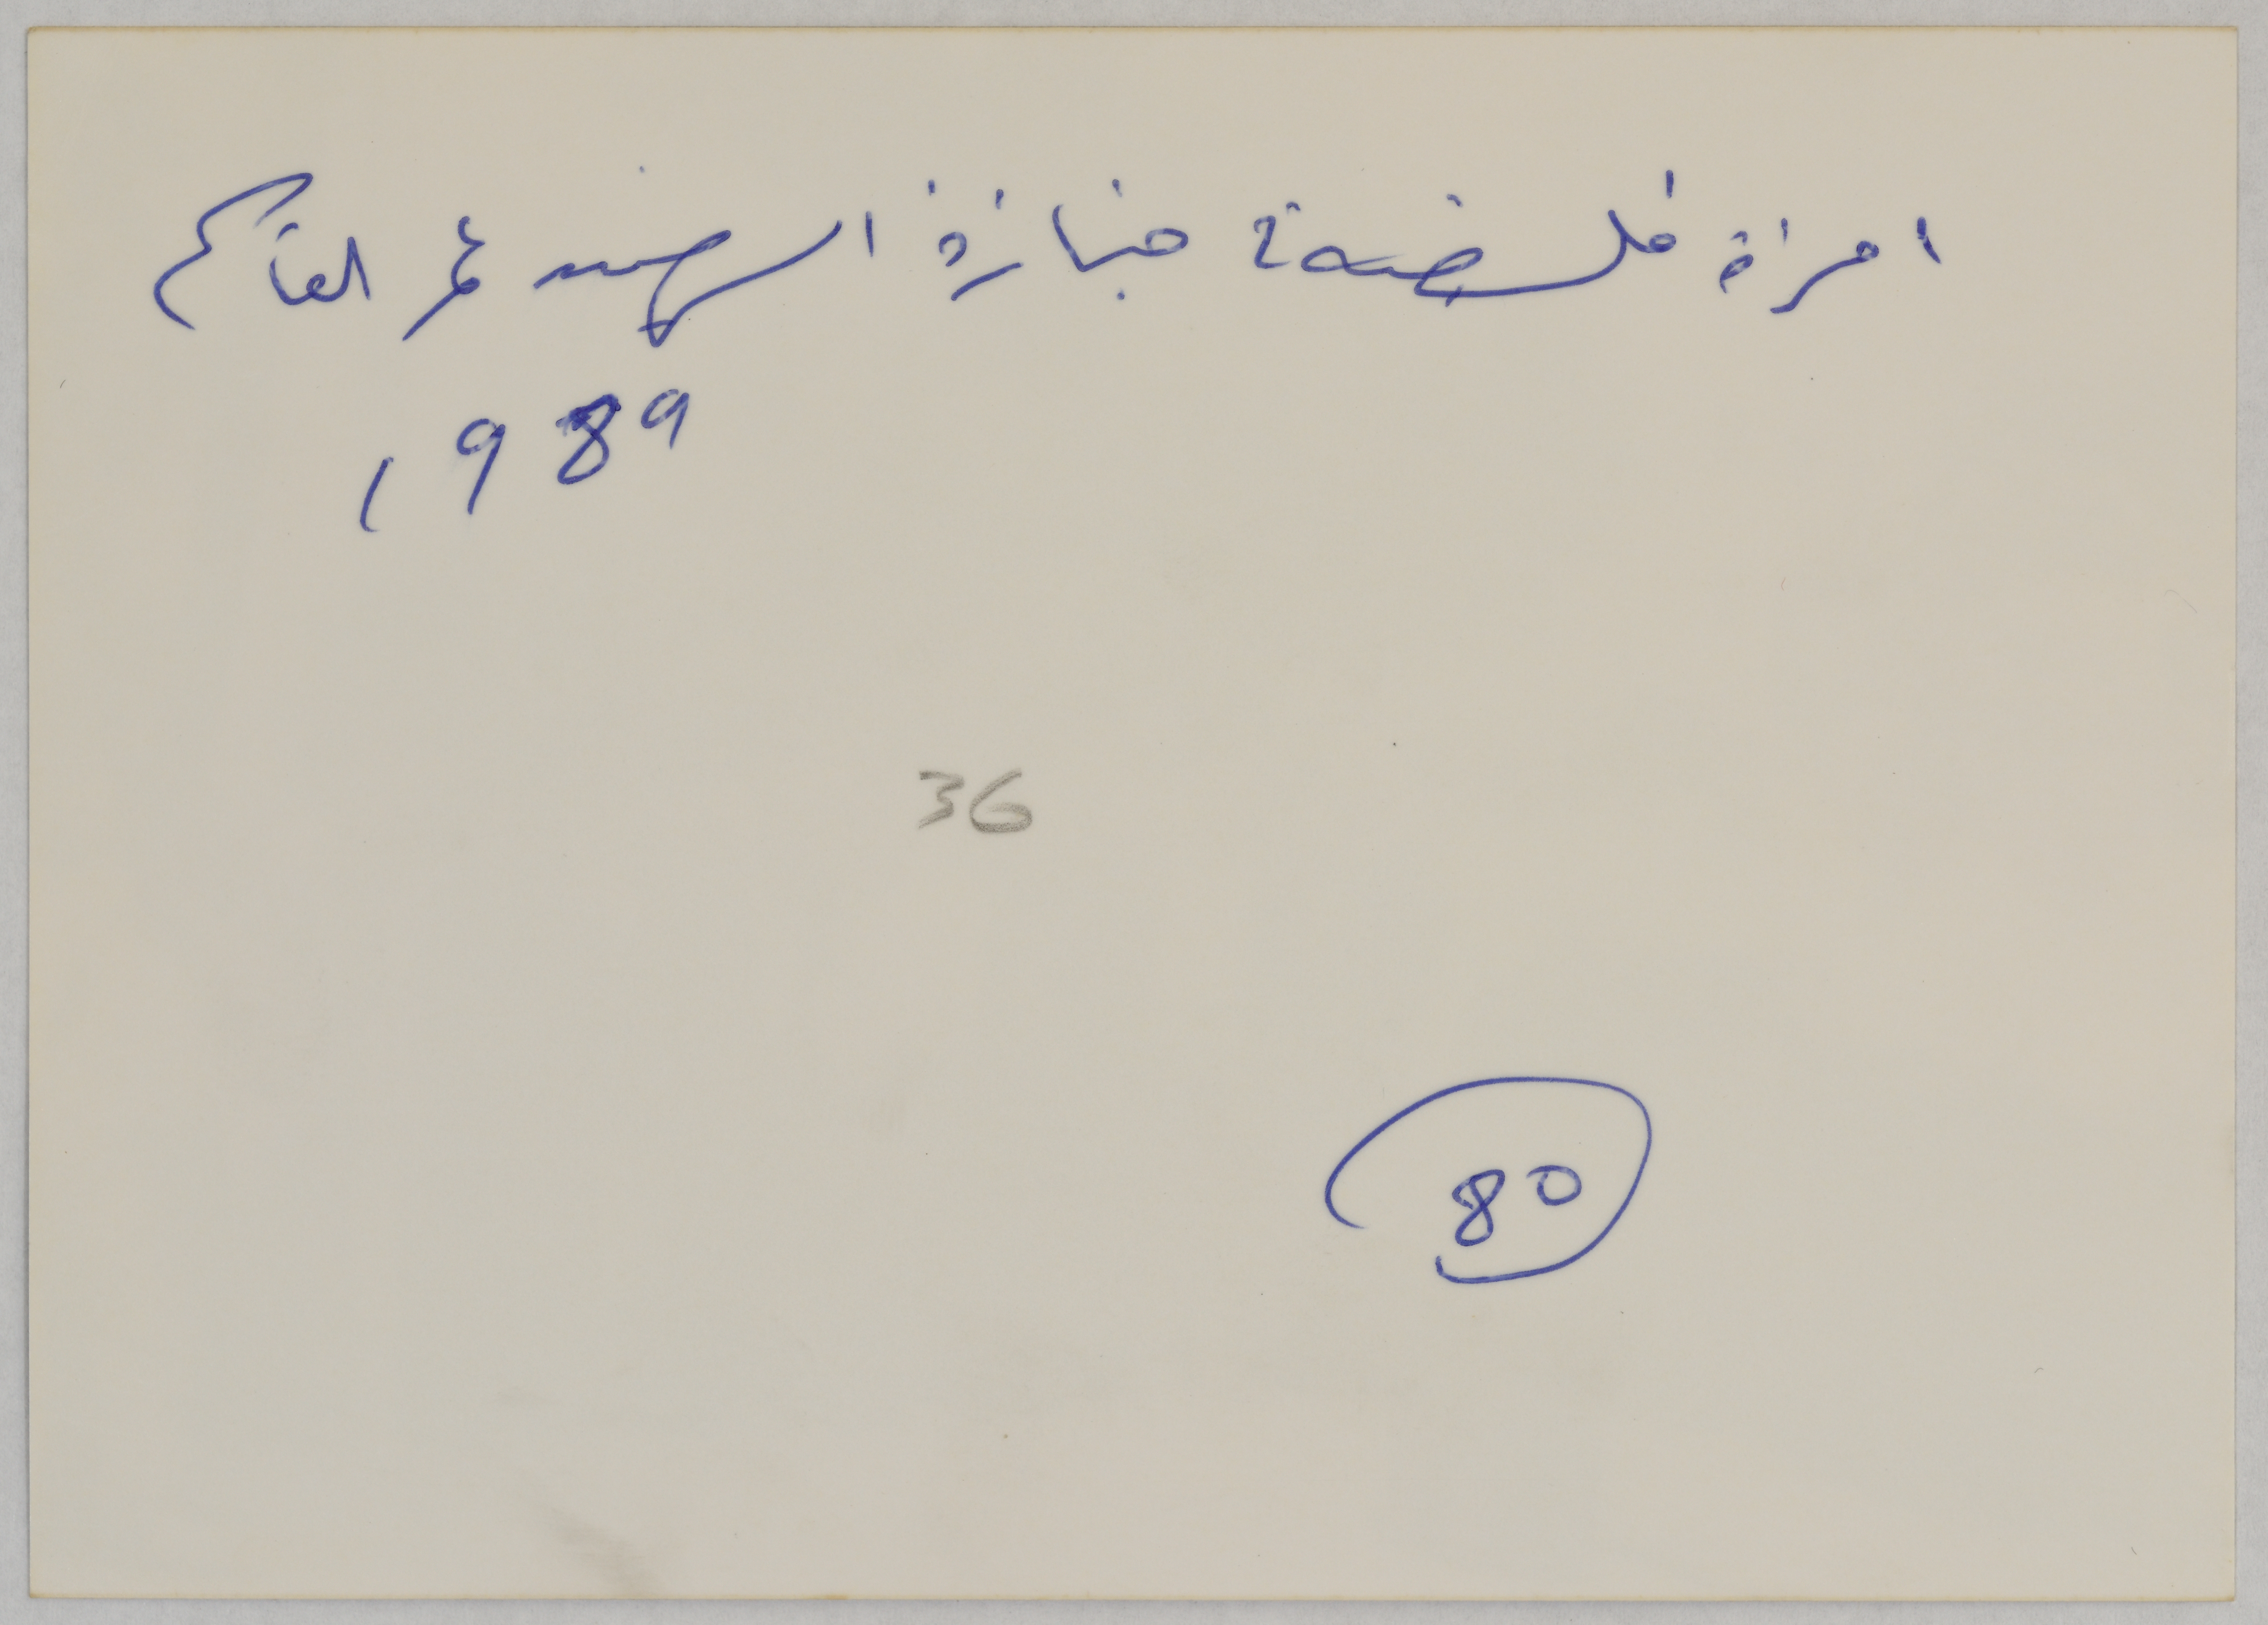 امرأة فلسطينية جنازة الشهيد عمر القاسم
1989
36
80